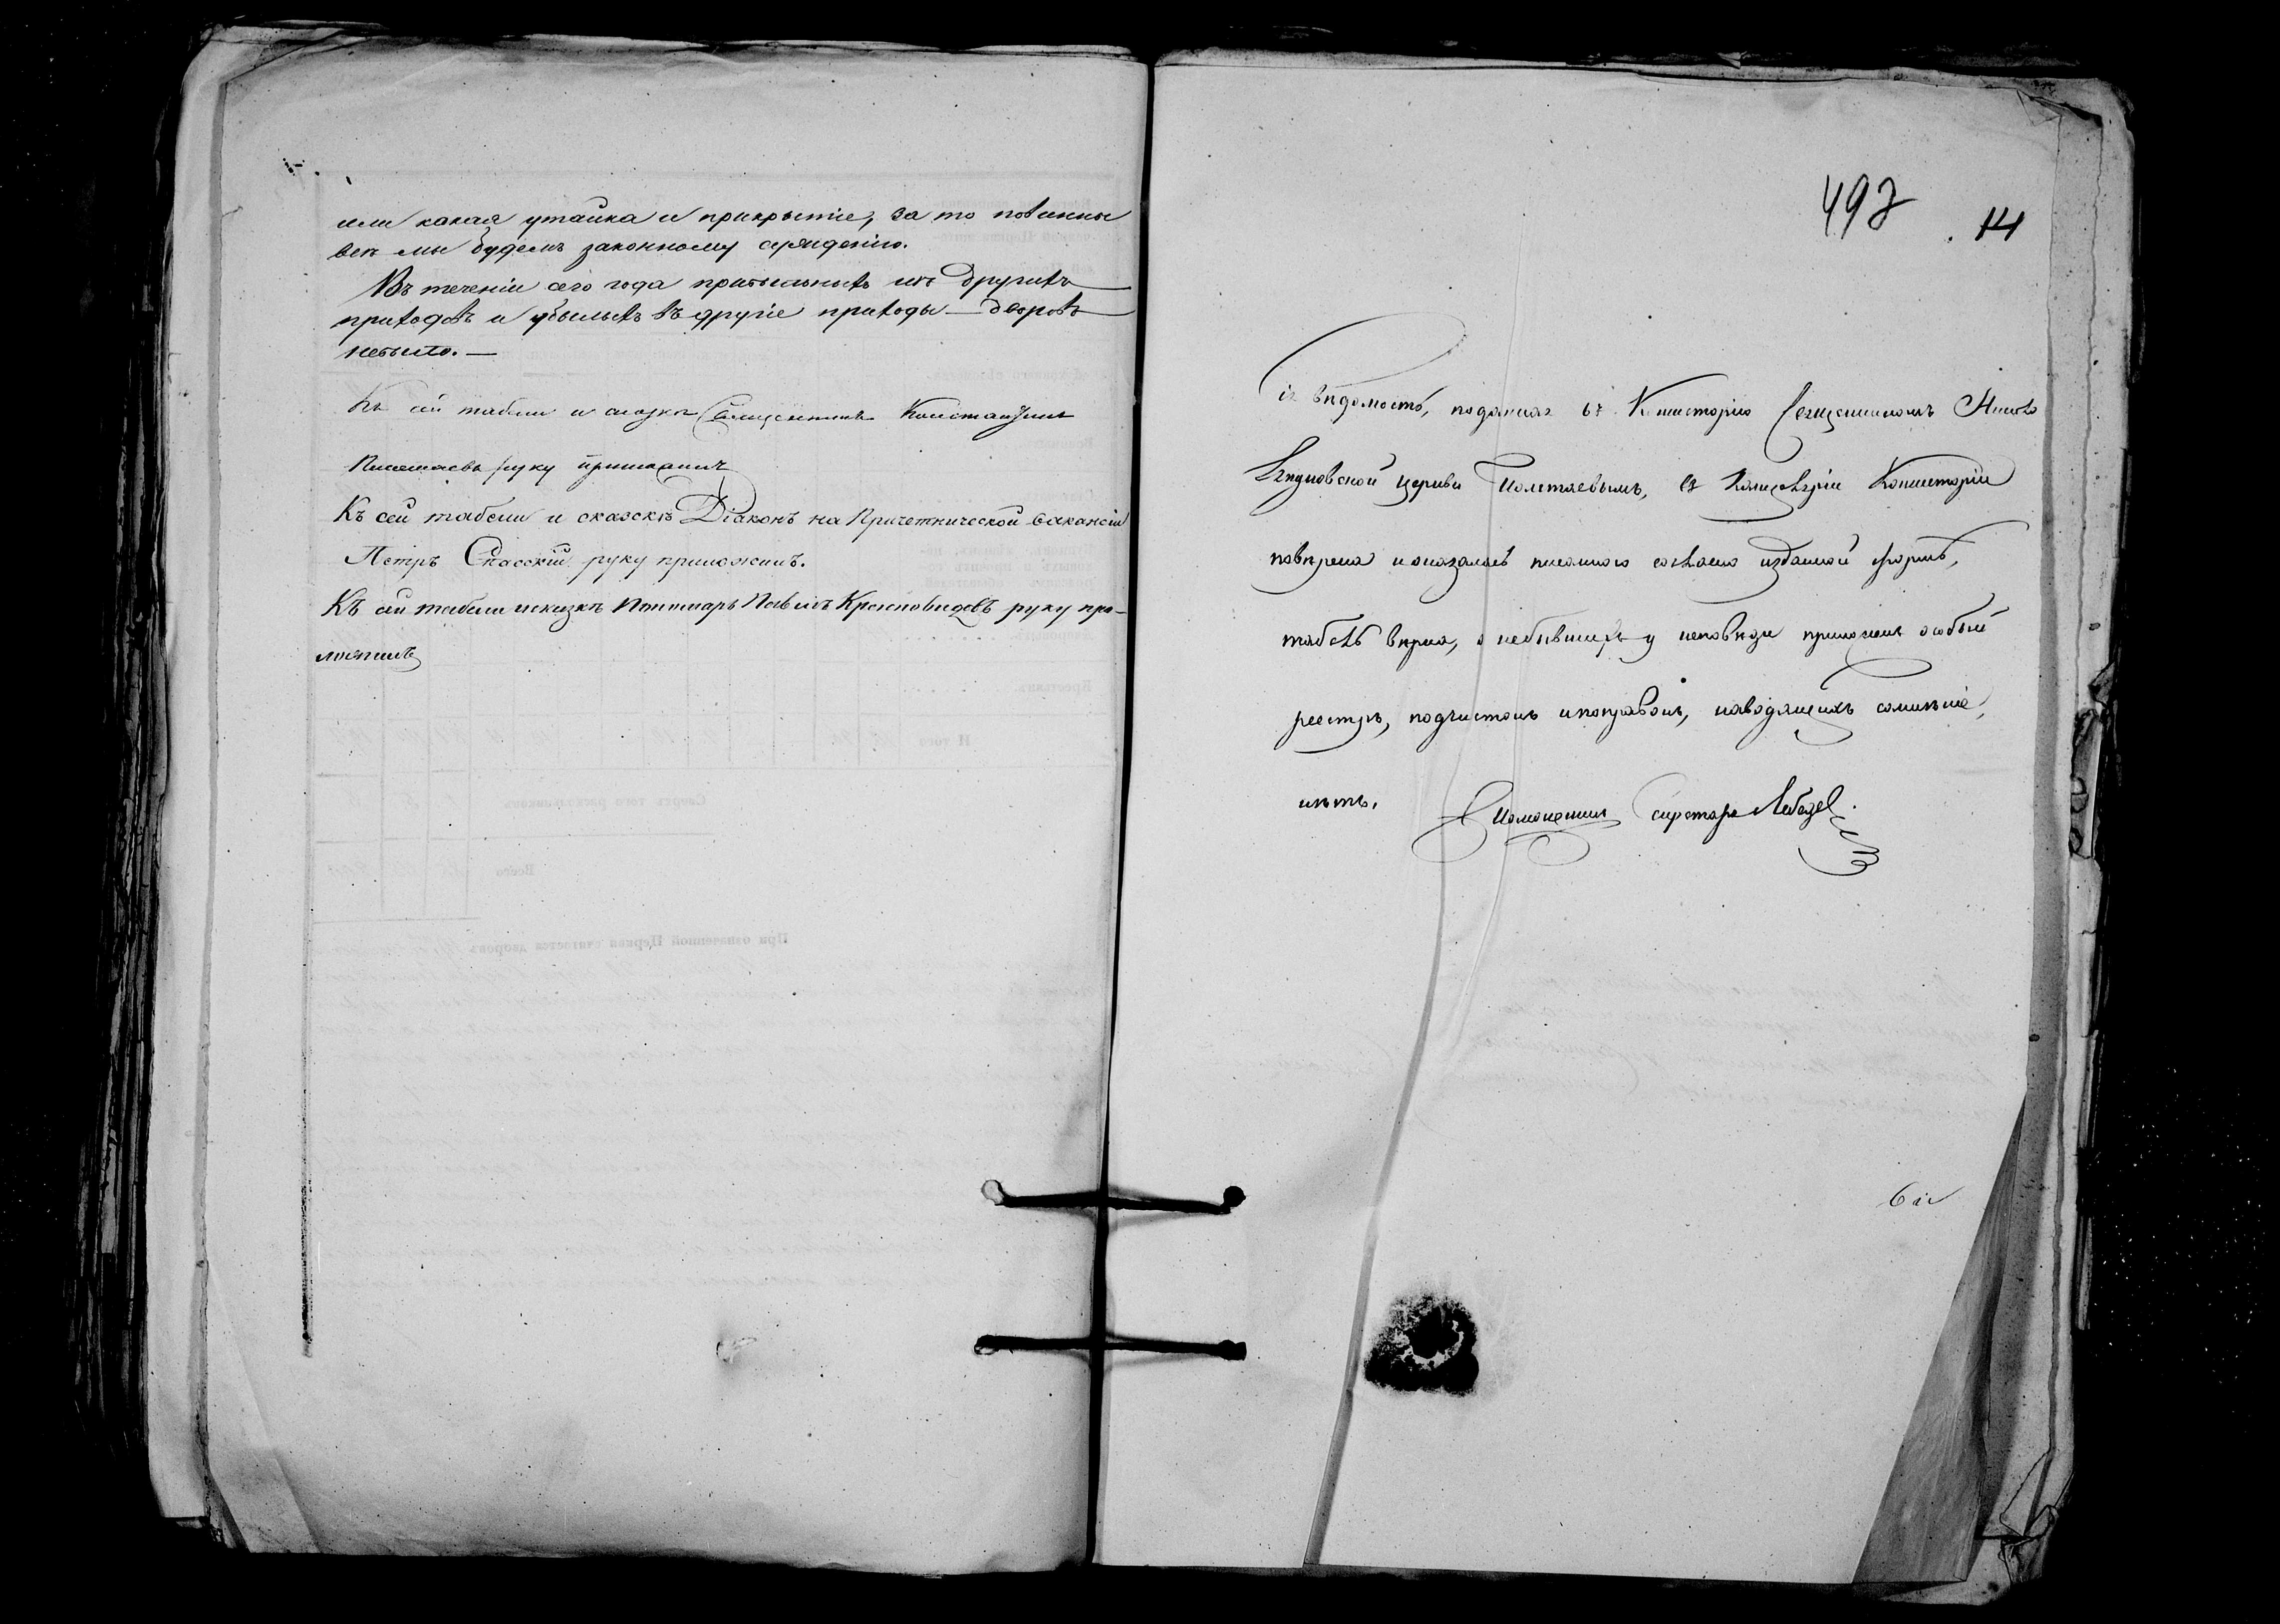 или какая утайка и прикрытіе, за то повинны
всѣ мы будемъ законному сужденію.
Въ теченіи сего года прибылыхъ изъ другихъ
приходовъ и убылыхъ въ другіе приходы — дворовъ
небыло. —
Къ сей табели и сказкѣ Священникъ Константинъ
руку приложилъ
Къ сей табели и сказскѣ Діаконъ на Причетнической вакансіи
Петръ Спасскій руку приложилъ.
Къ сей табели исказкѣ Пономарь Павелъ Красновидовъ руку при-
ложилъ
497 . 14
Сія вѣдомость, поданная въ Консисторію Священникомъ
церкви въ Канцеляріи Консисторіи
повѣрена и оказалась писанною согласно изданной формѣ,
табель вѣрна, о небывшихъ у исповѣди приложенъ особый
реестръ, подчистокъ ипоправокъ, наводящихъ сомнѣніе,
нѣтъ. Секретарь Лебедев